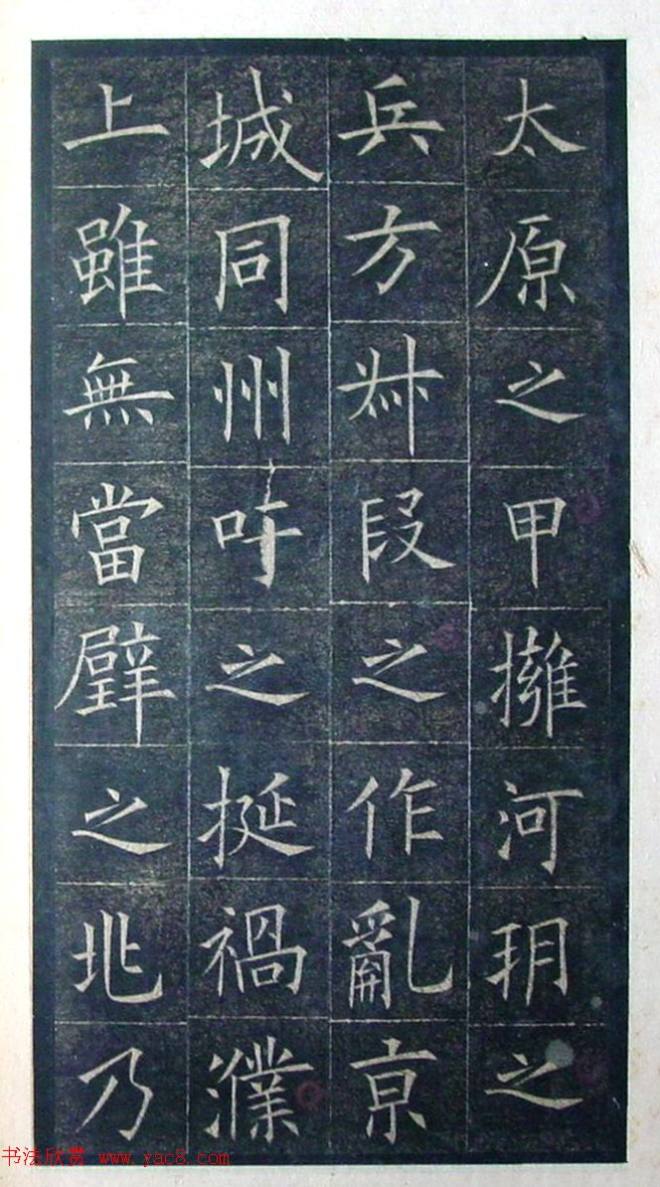 太原之甲擁河朔之
兵方叔段之作亂京
城同州吁之挻禍濮
上雖無當璧之兆乃
书法欣赏 www.yac8.com